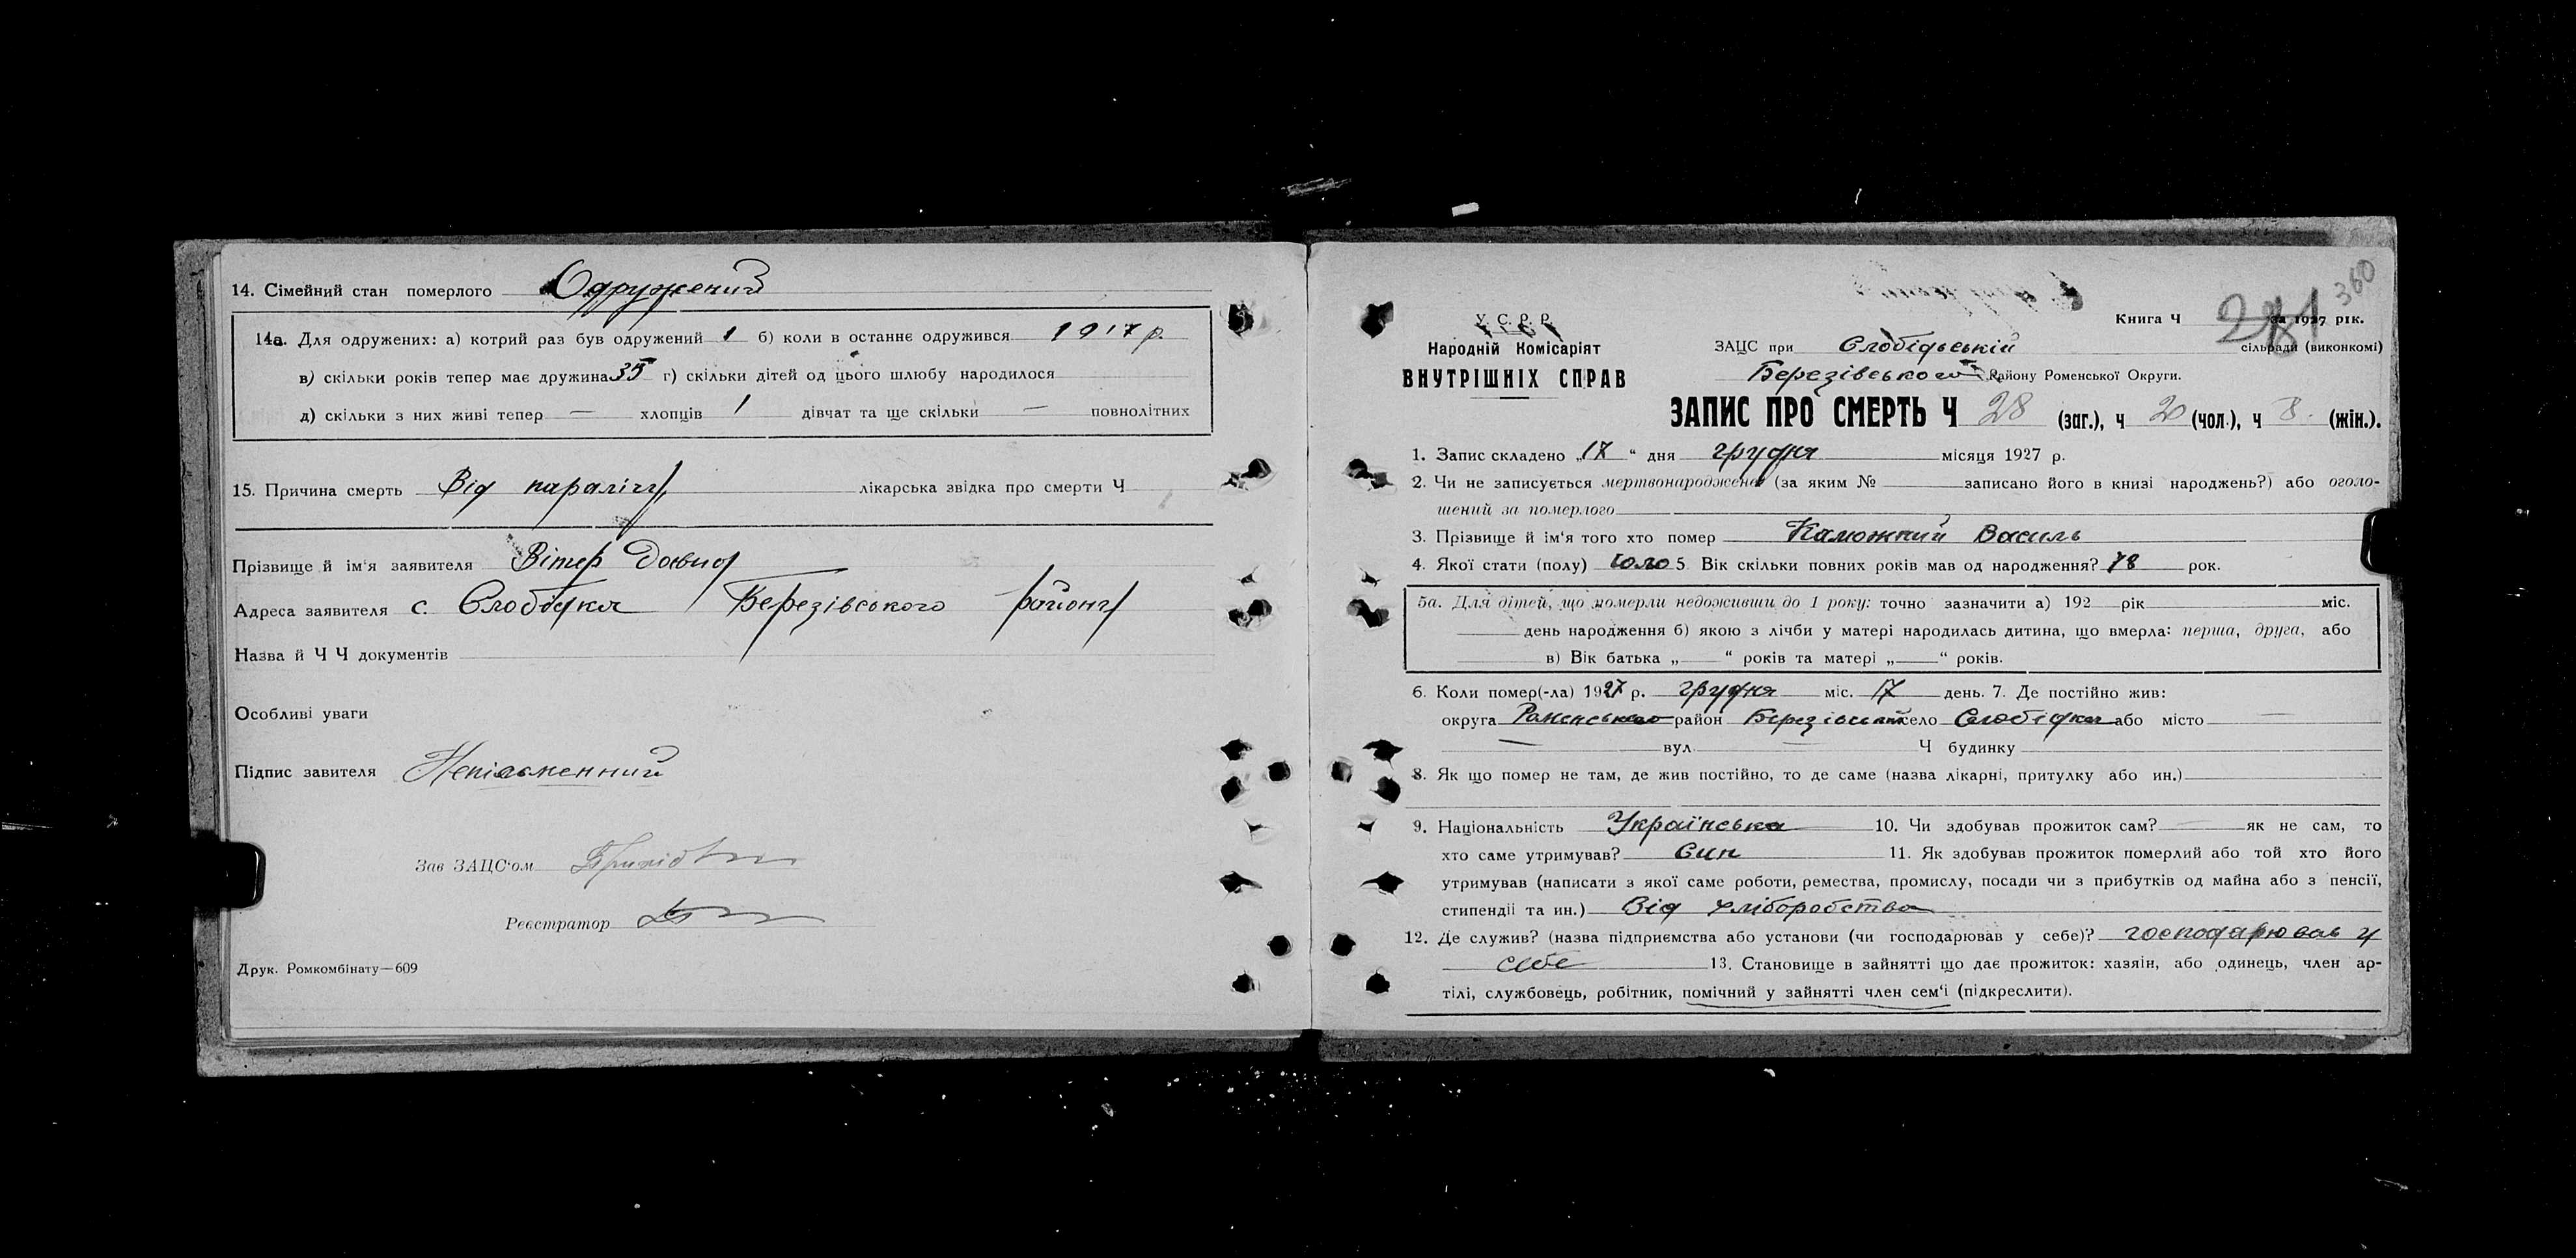 14. Сімейний стан померлого Одружений
14а. Для одружених: а) котрий раз був одружений 1 б) коли в останнє одружився 1917 р.
в) скільки років тепер має дружина 35 г) скільки дітей од цього шлюбу народилося
д) скільки з них живі тепер — хлопців 1 дівчат та ще скільки — повнолітних
15. Причина смерть Від паралічу лікарська звідка про смерти Ч
Прізвище й ім'я заявителя Вітер Давид
Адреса заявителя с. Слобідка Березівського району
Назва й Ч Ч документів
Особливі уваги
Підпис завителя
Зав ЗАЦС'ом
Реєстратор
Друк. Ромкомбінату—609
360
У. С. Р. Р.
Народній Комісаріят
ВНУТРІШНІХ СПРАВ
Книга Ч 281 за 1927 рік.
ЗАЦС при Слобідській сільради (виконкомі)
Березівського Району Роменської Округи.
ЗАПИС ПРО СМЕРТЬ Ч 28 (заг.), ч 20 (чол.), ч 8. (жін.).
1. Запис складено „17“ дня грудня місяця 1927 р.
2. Чи не записується мертвонароджене (за яким № записано його в книзі народжень?) або оголо-
шений за померлого
3. Прізвище й ім'я того хто помер Калюжний Василь
4. Якої стати (полу) чоло 5. Вік скільки повних років мав од народження? 78 рок.
5а. Для дітей, що померли недоживши до 1 року: точно зазначити а) 192 рік міс.
день народження б) якою з лічби у матері народилась дитина, що вмерла: перша, друга, або
в) Вік батька „ “ років та матері „ “ років.
6. Коли помер(-ла) 1927 р. грудня міс. 17 день. 7. Де постійно жив:
округа Роменського район Березівський село Слобідка або місто —
— вул. — Ч будинку
8. Як що помер не там, де жив постійно, то де саме (назва лікарні, притулку або ин.)
9. Національність Українська 10. Чи здобував прожиток сам? — як не сам, то
хто саме утримував? Син 11. Як здобував прожиток померлий або той хто його
утримував (написати з якої саме роботи, ремества, промислу, посади чи з прибутків од майна або з пенсії,
стипендії та ин.) Від хліборобства
12. Де служив? (назва підприємства або установи (чи господарював у себе)? господарював у
себе 13. Становище в зайнятті що дає прожиток: хазяін, або одинець, член ар-
тілі, службовець, робітник, помічний у зайнятті член сем'і (підкреслити).